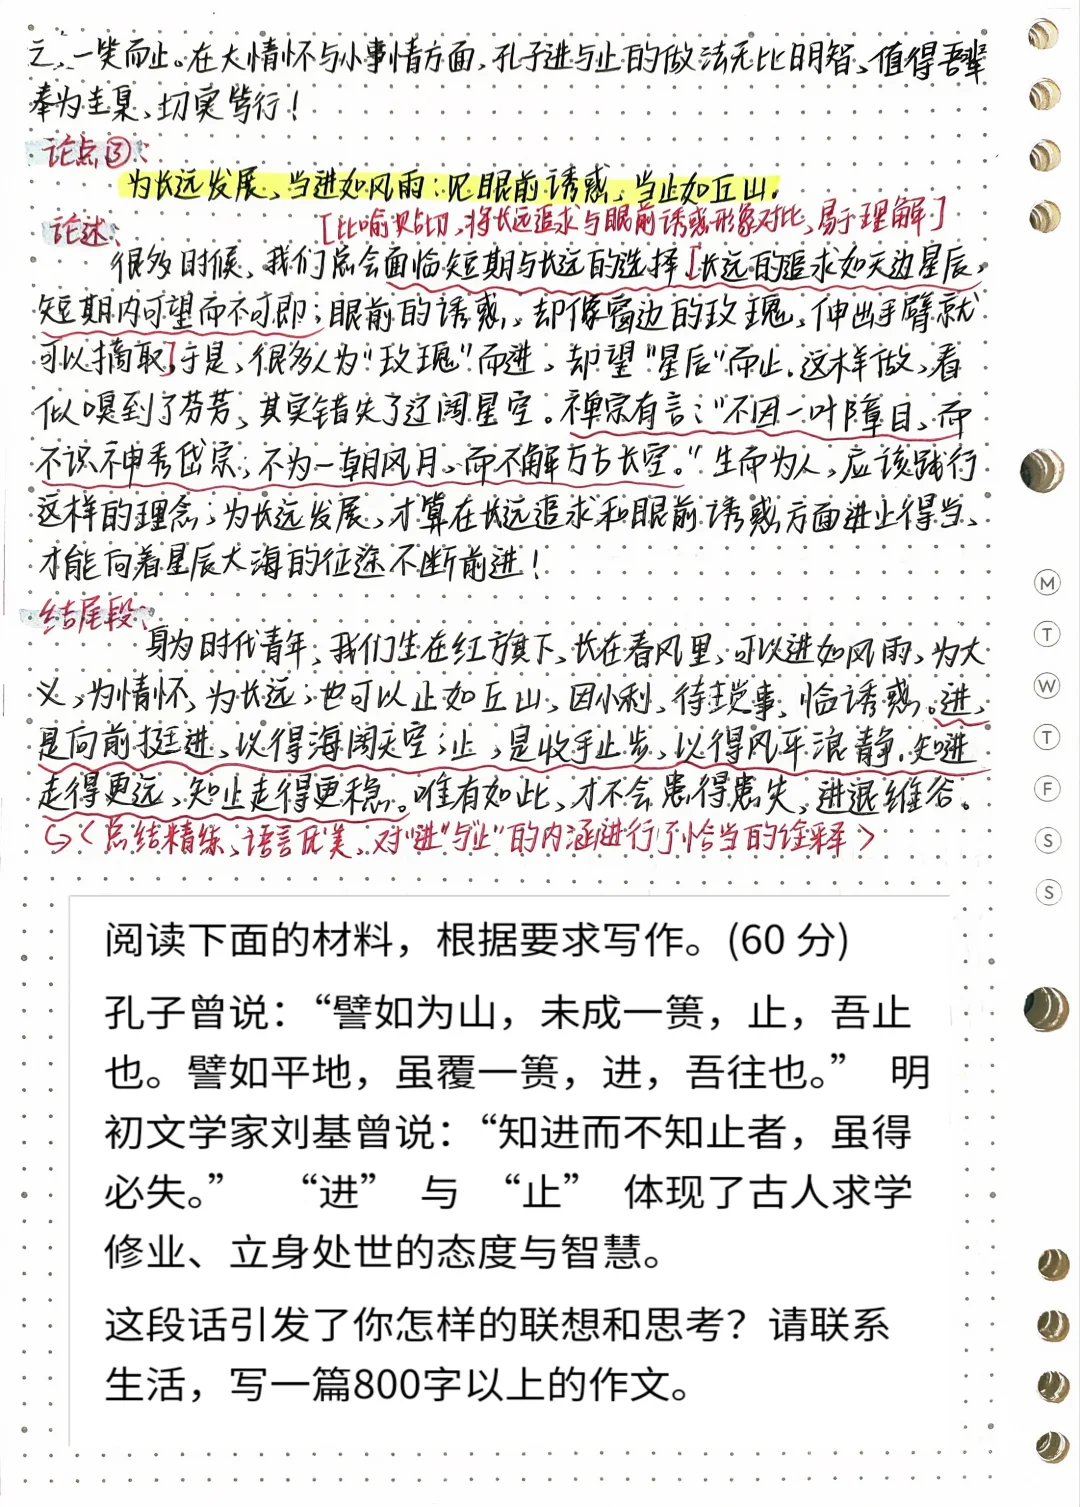 之,一笑而止。在大情怀与小事情方面,孔子进与止的做法无比明智,值得吾辈
奉为圭臬、切实笃行!
论点③:
为长远发展,当进如风雨;见眼前诱惑,当止如丘山。
论述:
[比喻贴切,将长远追求与眼前诱惑形象对比,易于理解]
很多时候,我们总会面临短期与长远的选择[长远的追求如天边星辰,
短期内可望而不可即;眼前的诱惑,却像窗边的玫瑰,伸出手臂就
可以摘取]于是,很多人为“玫瑰”而进,却望“星后”而止.这样做,看
似嗅到了芬芳,其实错失了辽阔星空。禅宗有言:“不因一叶障目,而
不识神秀岱宗;不为一朝风月,而不解万古长空。”生而为人,应该践行
这样的理念;为长远发展,才算在长远追求和眼前诱惑方面进止得当,
才能向着星辰大海的征途不断前进!
结尾段:
身为时代青年,我们生在红旗下,长在春风里,可以进如风雨,为大
义,为情怀,为长远;也可以止如丘山,因小利,待琐事,临诱惑。进,
是向前挺进,以得海阔天空;止,是收手止步,以得风平浪静.知进
走得更远,知止走得更稳。唯有如此,才不会患得患失,进退维谷。
↪<总结精练,语言优美,对“进”与“止”的内涵进行了恰当的诠释>
M
T
W
T
F
S
S
阅读下面的材料,根据要求写作。(60 分)
孔子曾说:“譬如为山,未成一篑,止,吾止
也。譬如平地,虽覆一篑,进,吾往也。” 明
初文学家刘基曾说:“知进而不知止者,虽得
必失。” “进” 与 “止” 体现了古人求学
修业、立身处世的态度与智慧。
这段话引发了你怎样的联想和思考?请联系
生活,写一篇800字以上的作文。